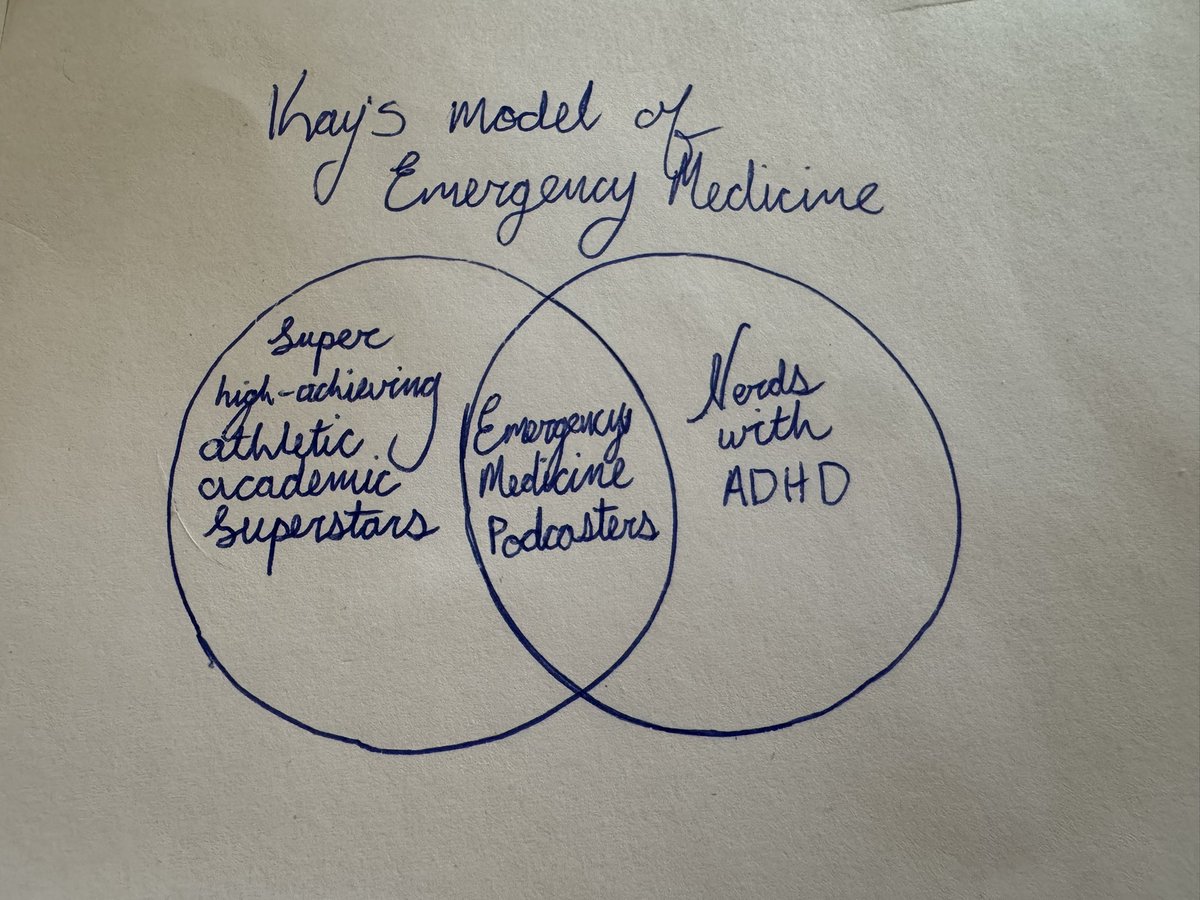 Kay's model of
Emergency Medicine
Super
high-achieving
athletic
academic
Superstars
Emergency
Medicine
Podcasters
Nerds
with
ADHD